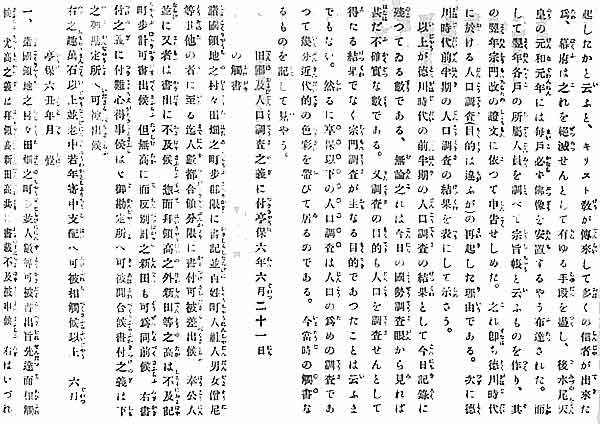 起したかと云ふと、キリスト敎が傳來して多くの信者が出來た
爲、幕府は之れを絶滅せんとして有ゆる手段を盡し、後水尾天
皇の元和元年には每戶必ず佛像を安置するやう布達された。而
して翌年各戶の所屬人員を調べて宗旨帳と云ふものを作り、其
の翌年宗門改の證文に依つて申告せしめた。之れ卽ち德川時代
に於ける人口調査目的は違ふがの再起した理由である。次に德
川時代前半期の人口調査の結果を表にして示さう。
以上が德川時代の前半期の人口調査の結果として今日記錄に
殘つてゐる數である、無論之れは今日の國勢調査眼から見れば
甚だ不確實な數である。又調査の目的も人口を調査せんとして
得たる結果でなく宗門調査が主なる目的であつたことは云ふま
でもない。然るに享保以下の人口調査は人口の爲めの調査であ
つて幾分近代的の色彩を帶びて居るのである。今當時の觸書な
るものを記して見やう。
舊郡及人口調査之義に付享保六年六月二十一日
の觸書
諸國領地之村々田畑之町步郡限に書記並百姓町人社人男女僧尼
等其他の者に至る迄人數都合領分限に書付可被差出候 奉公人
並に又者は書出に不及候 惣而拜領高之外新田等之高は不及記
町步計可書出候 但無高に而反別計之新田も可爲同前候 右書
付之義に付難心得事候はゞ御勘定所へ可被聞合候書付之義は下
之御勘定所へ可被出候
右之趣萬石以上並老中若年寄中支配へ可被相觸候以上 六月
享保六丑年月 覺
一、諸國領地之村々田畑之町步並人數等可被書出旨先達而相觸
候 尤高之義は拜領高新田高共に書載不及被申候 右はいづれ